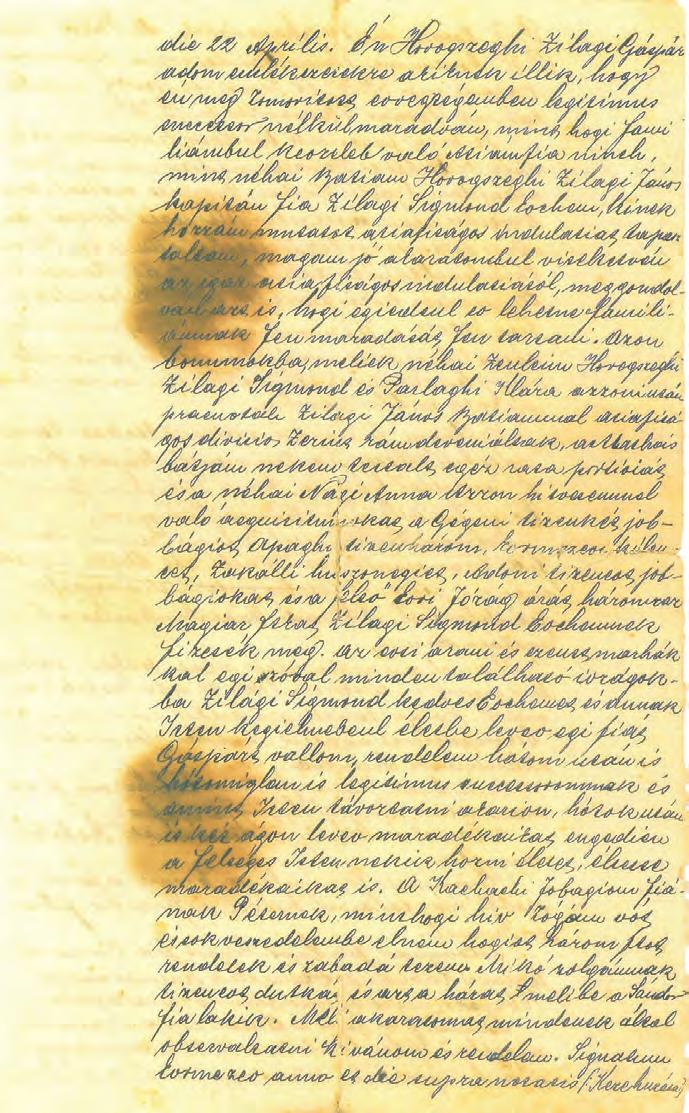 die 22 Április. Én Horogszeghi Zilagi Gáspár
adom emlékezetekre a kiknek illik, hogy
én meg Zomoritott eoregségemben legitimus
successor nélkül maradván, mint hogi Fami
liámbul keozleb való Atiámfia ninch,
mint néhai Batiam Horogszeghi Zilagi János
kapitán fia Zilagi Sigmond Eochem, kinek
hozzám mutatot atiafiságos indulatiat tapaz
taltam, magam jó akaratombul viseltetvén
az igaz atiafiságos indulatiától, meggondol-
ván azt is, hogi egiedeul eo lehetne famili-
ámnak fenmaradását fen tartani. Azon
bonumokba, meliek néhai Zeuleim Horogszeghi
Zilagi Sigmond és Parlaghi Klára azzoni után
praenotált Zilagi János Batiammal atiafisá-
gos divisio Zerint rám deveniáltak,
bátiám nekem egéz rata portioiat,
és a néhai Nagi Anna Azzon hitvesemmel
való acquisitumokat, a Gégeni tizenkét job-
bágiot, Apaghi tizenhárom, Eormezeoi kilen-
cet, Zakálli huszonegiet, Adoni tizeneot job-
bágiokat, és a felső Eori Jószág árát, háromzaz
Magiar ftrat, Zilagi Sigmond Eochemnek
fizessék meg. Az eosi arani és ezeust marhák
kal egi szóval minden található jozágok-
ba Zilági Sigmond kedves Eochemet, és annak
Isten kegielmebeul életbe leveo egi fiát,
Gáspárt, vallom, rendelem hótom után is
hótomiglan is legitimus successoromnak és
amint Isten távoztatni akarion, hótok után
is két ágon leveo maradékaikat, engedien
a felséges Isten nekik hozzu életet, éltesse
maradékaikat is. A Kachachi Jobagiom fiá-
nak Péternek, minthogi hiv Zógám vot
és sok veszedelembe elnem hagiot, három ftot
rendelek és zabadá tezem. Mikó zolgámnak
tizeneot dutkát, és azt a házat melibe a Sándor
fia lakik. Meli akaratomat mindenek által
observáltatni kivánom és rendelem. Signatum
Eormezeo anno et die supra notatis